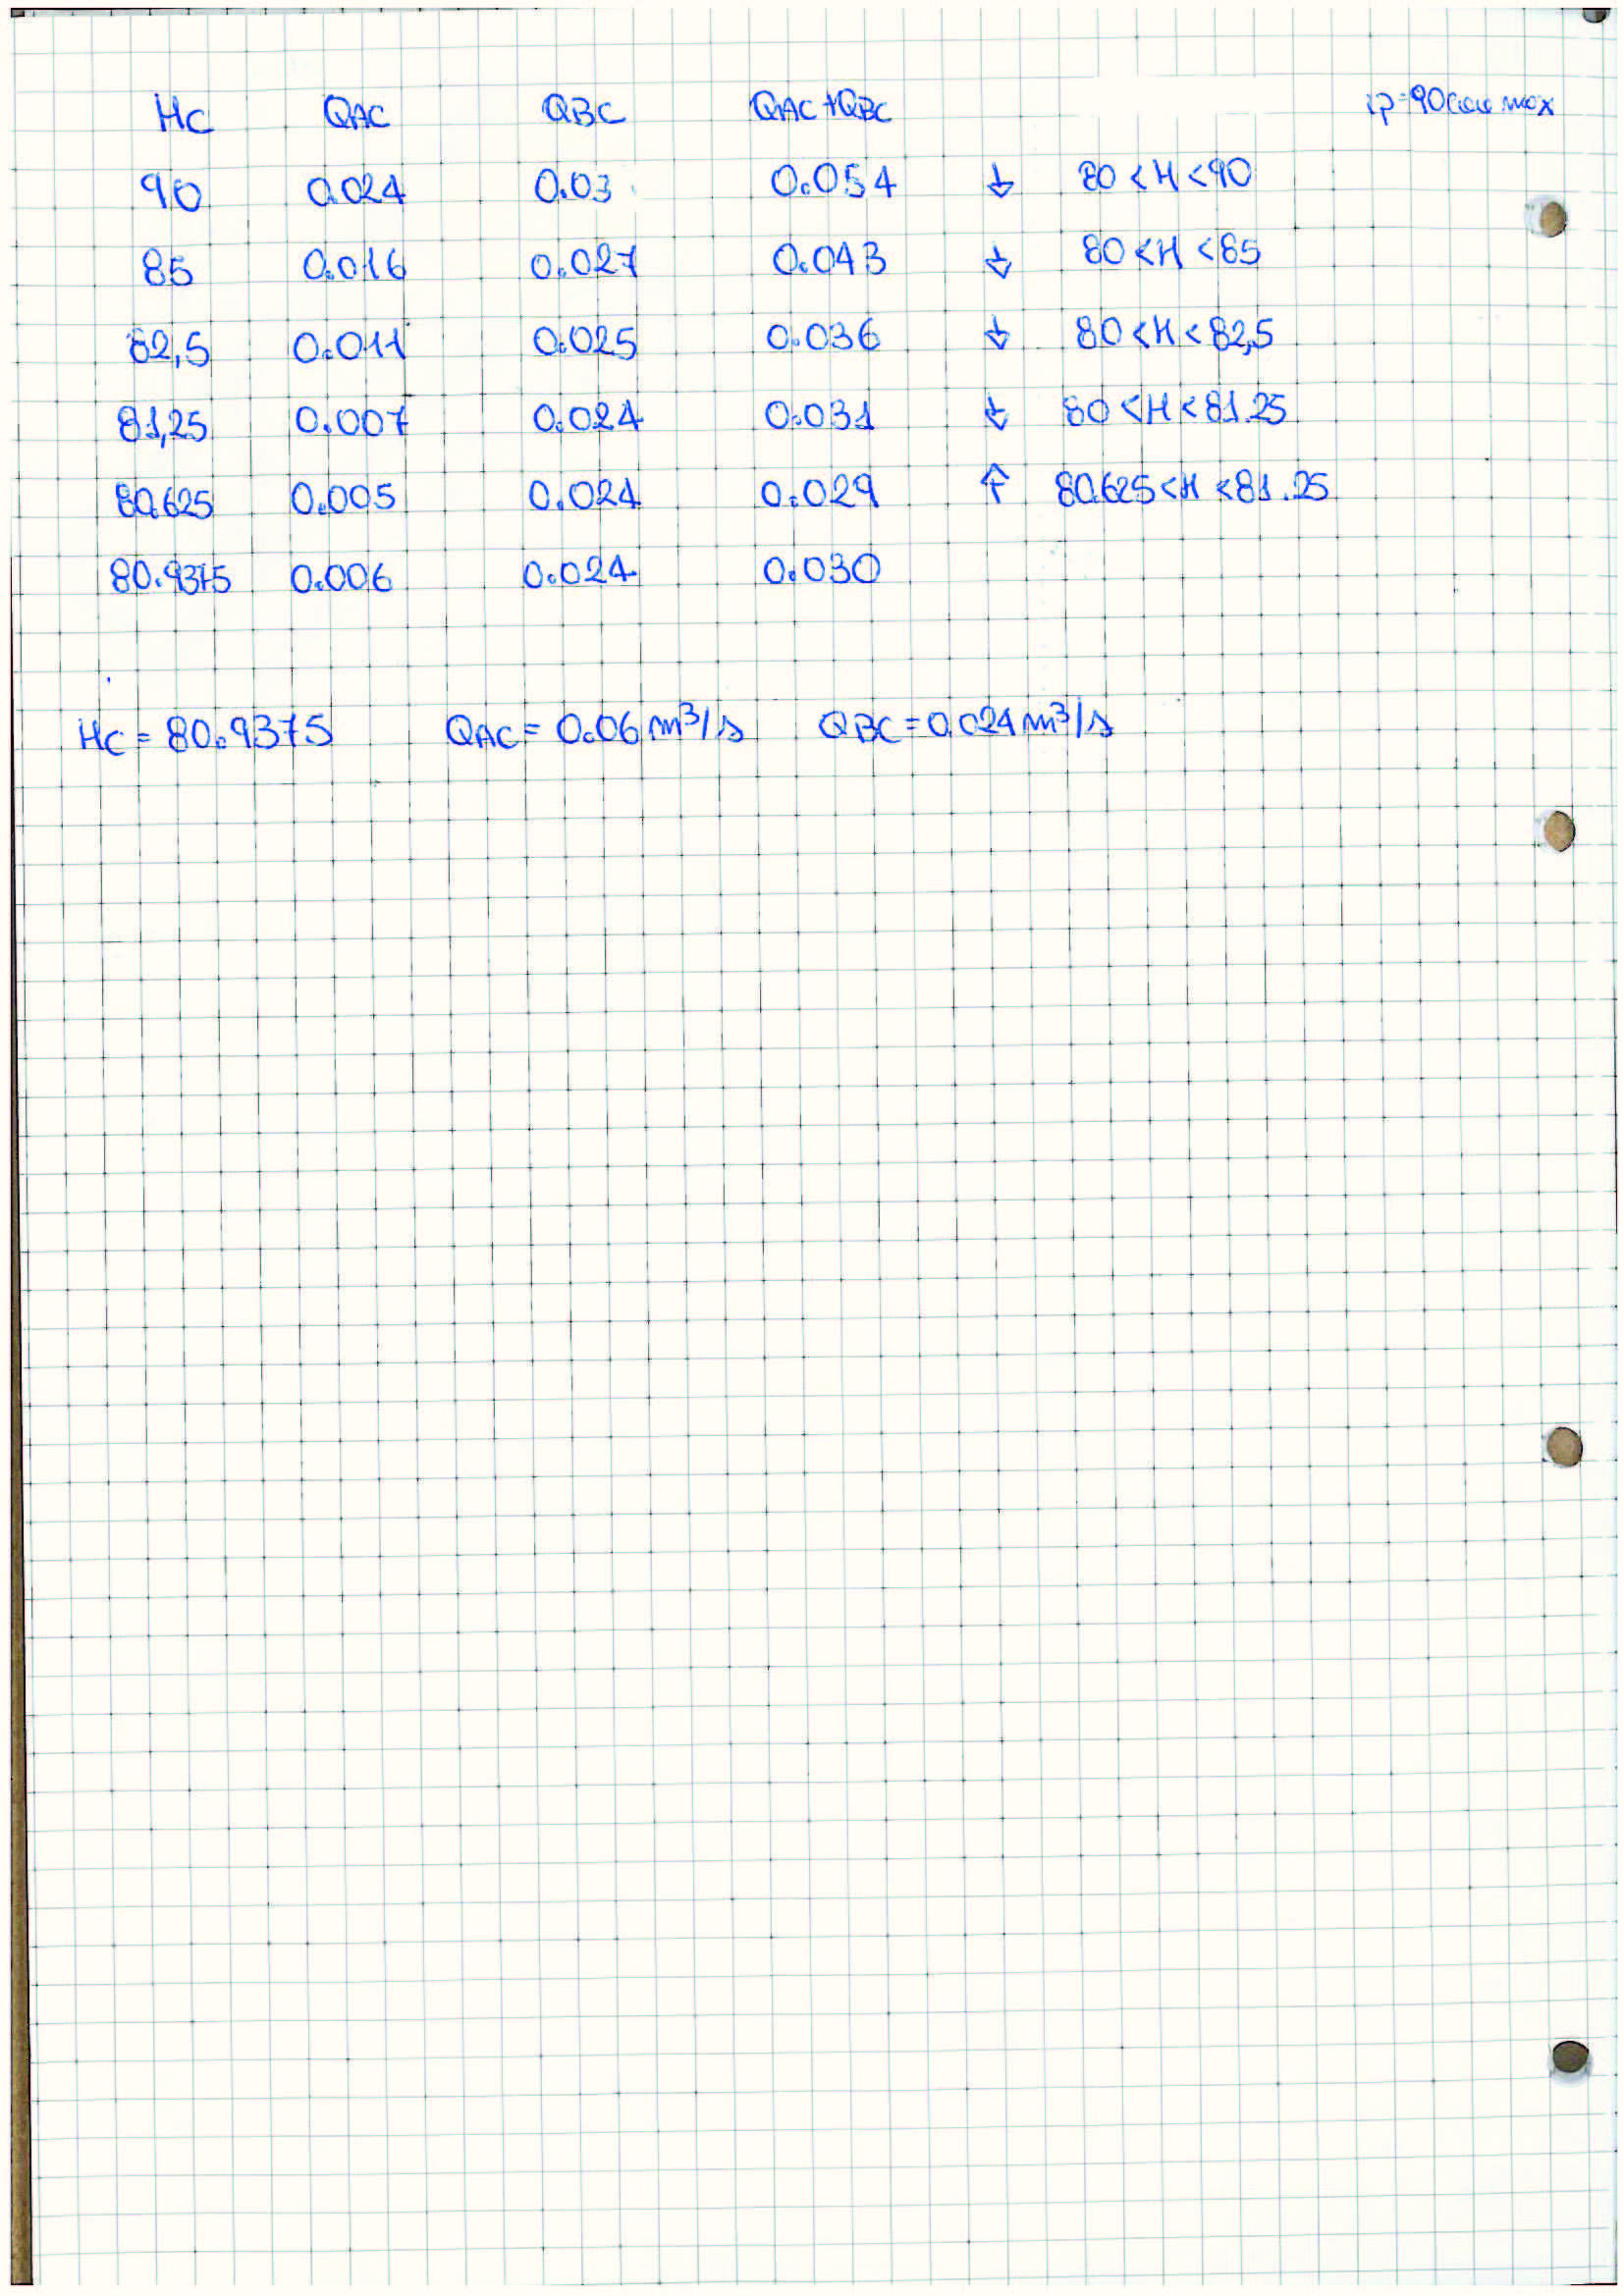 HC QAC QBC QAC+QBC ip=90 max
90 0.024 0.03 0.054 ↓ 80<H<90
85 0.016 0.027 0.043 ↓ 80<H<85
82,5 0.011 0.025 0.036 ↓ 80<H<82,5
81,25 0.007 0.024 0.031 ↓ 80<H<81.25
80.625 0.005 0.024 0.029 ↑ 80.625<H<81.25
80.9375 0.006 0.024 0.030
HC = 80.9375 QAC = 0.06 m³/s QBC = 0.024 m³/s